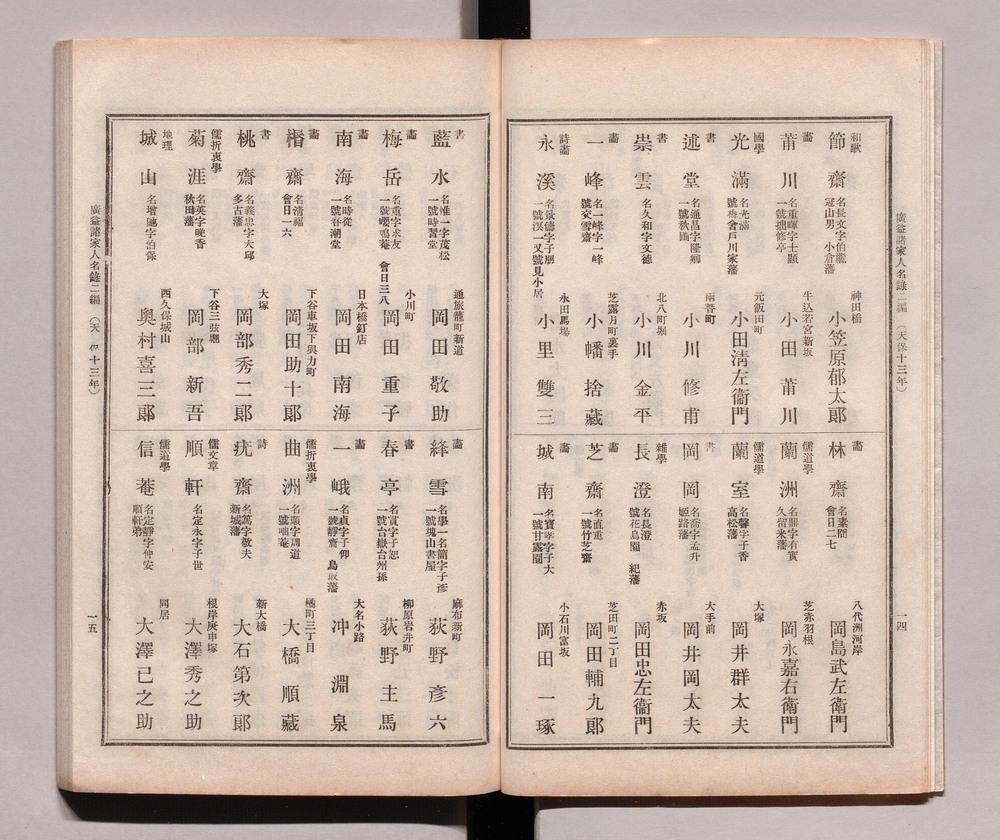 廣益諸家人名錄二編 (天保十三年)
一四
和歌
節齋
名長文字伯
冠山男 小倉藩
神田橋
小笠原郁太郎
畵
莆川
名重暉字士顯
一號拙修亭
牛込若宮新坂
小田莆川
國學
光滿
名光滿
元飯田町
小田淸左衞門
書
述堂
名通昌字
一號秋
兩替町
小川修甫
書
崇雲
名久和字文德
北八町堀
小川金平
畵
一峰
名一峰字一峰
芝露月町裏手
小幡捨藏
詩畵
永溪
永田馬場
小里雙三
畵
林齋
名素問
會日二七
八代洲河岸
岡島武左衞門
儒道學
蘭洲
久留米藩
芝赤羽根
岡永嘉右衞門
儒道學
蘭室
名馨字子香
高松藩
大塚
岡井群太夫
書
岡岡
姬路藩
大手前
岡井岡太夫
雜學
長澄
名長澄
號花鳥園 紀藩
赤坂
岡田忠左衞門
畵
芝齋
名直重
一號竹芝齋
芝田町二丁目
岡田輔九郎
畵
城南
一號甘露園
小石川富坂
岡田一琢
書
藍水
名惟一字茂松
一號時習堂
通旅籠町新道
岡田敬助
畵
梅岳
名重字求友
一號嚶鳴菴 會日三八
小川町
岡田重子
畵
南海
名時從
一號春潮堂
日本橋釘店
岡田南海
畵
榴齋
名清福
會日一六
下谷車坂下與力町
岡田助十郎
書
桃齋
名義忠字大邱
多古藩
大塚
岡部秀二郎
儒折衷學
菊涯
名英字晚香
秋田藩
下谷三弦堀
岡部新吾
地理
城山
西久保城山
奥村喜三郎
畵
絳雪
名學一名簡字子彥
一號塊山書屋
麻布新町
荻野彥六
書
春亭
一號台嶽台州孫
柳原岩井町
荻野主馬
畵
一峨
名貞字子仰
一號靜齋 鳥取藩
大名小路
冲淵泉
儒折衷學
曲洲
橘町三丁目
大橋順藏
詩
疣齋
名萬字敬夫
新城藩
新大橋
大石第次郎
儒文章
順軒
名定永字子世
根岸庚申塚
大澤秀之助
儒道學
信菴
名定靜字仲安
順軒弟
同居
大澤已之助
廣益諸家人名錄二編 (天保十三年)
一五